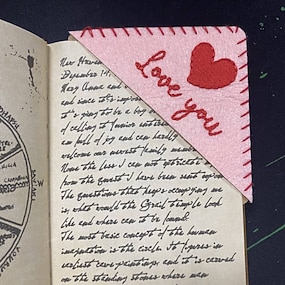 Love you
New Haven
December 14,
Mary Anne and
and since it's impor
it's going to be a boy
of calling it Junior
am full of joy and can hardly
welcome our newest family member
None the less I can not
from the quest I have been sent upon
The questions that keeps occupying me
is, what would the Grail temple look
like and where can it be found?
The most basic concept of the human
imagination is the circle. It figures in
earliest cave paintings and it is carved
on the standing stones where man